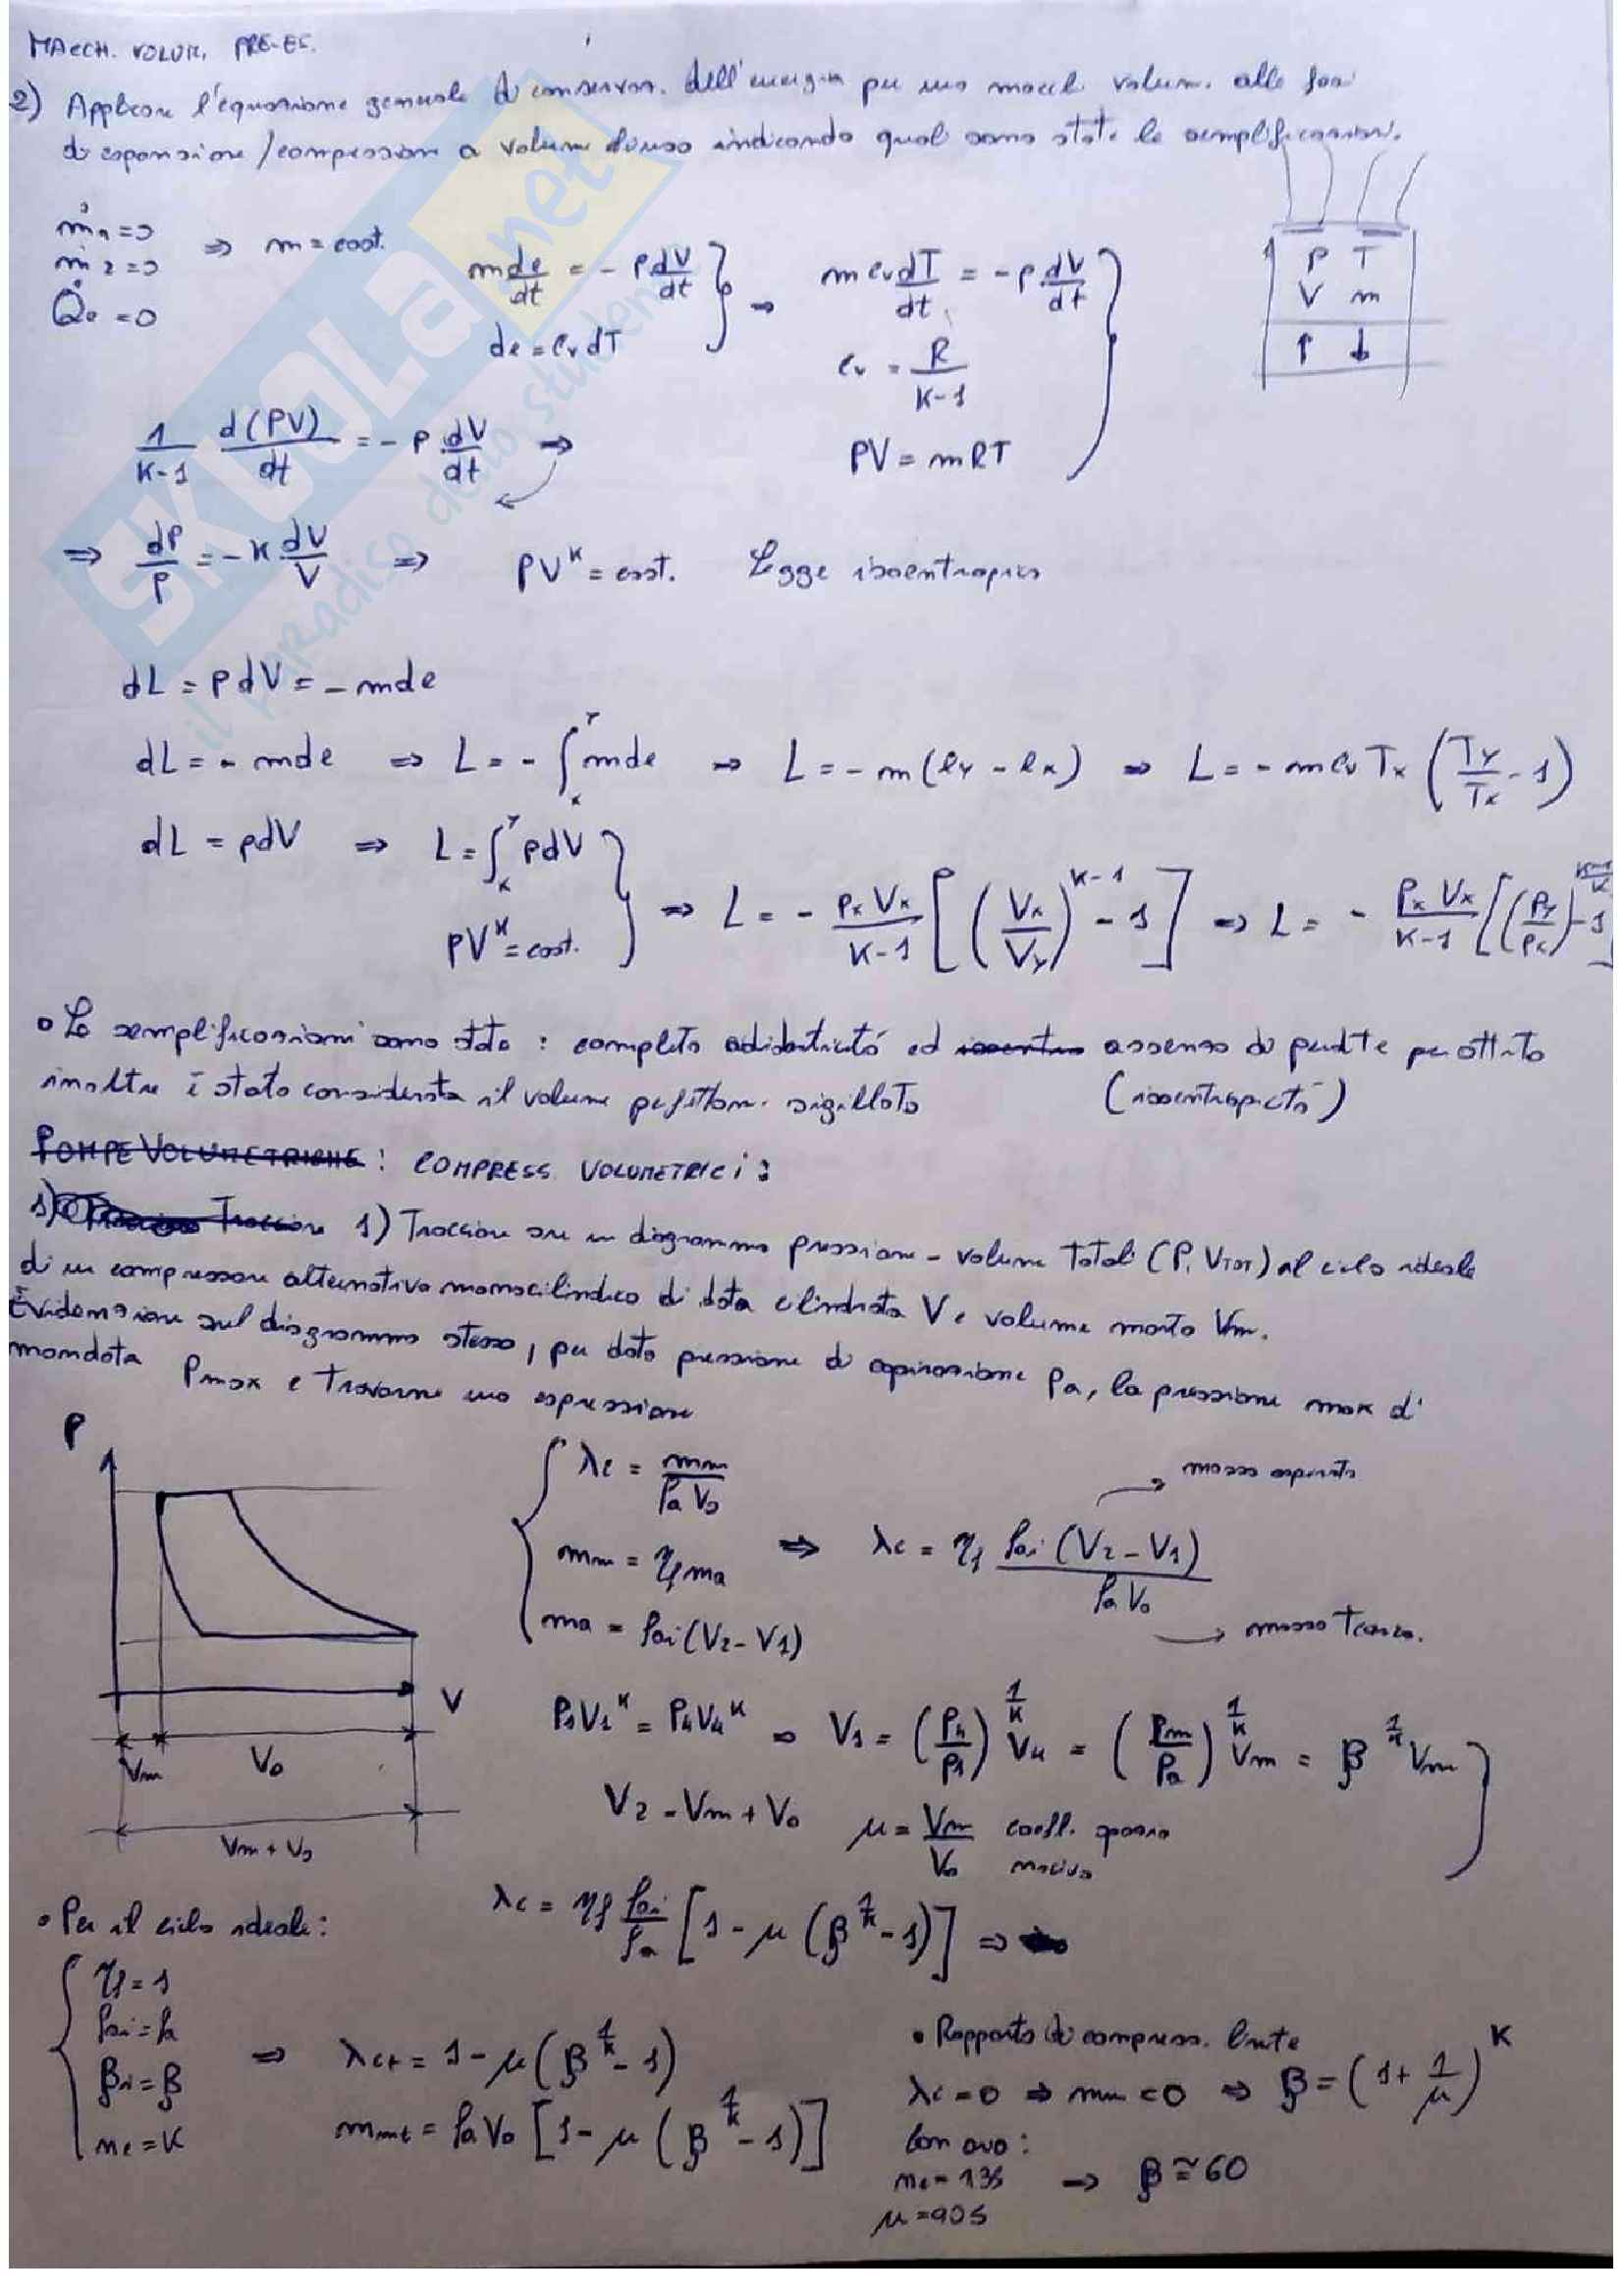 MACCH. VOLUM. PRE-ES.
2) Applicare l'equazione generale di conservaz. dell'energia per una macch. volum. alle fasi
di espansione/compressione a volume chiuso indicando quali sono state le semplificazioni.
ṁ₁ = 0
ṁ₂ = 0 ⇒ m = cost.
Q̇e = 0
m de/dt = - p dV/dt
de = cv dT
⇒ m cv dT/dt = - p dV/dt
cv = R/(K-1)
PV = mRT
P T
V m
1/(K-1) d(PV)/dt = - P dV/dt ⇒
⇒ dP/P = - K dV/V ⇒ PV^K = cost. Legge isoentropica
dL = PdV = - mde
dL = - mde ⇒ L = - ∫ₓʸ mde ⇒ L = - m(eY - eX) ⇒ L = - m cv Tx (Ty/Tx - 1)
dL = pdV ⇒ L = ∫ₓʸ PdV
PV^K = cost.
⇒ L = - PxVx/(K-1) [(Vx/Vy)^(K-1) - 1] ⇒ L = - PxVx/(K-1) [(Py/Px)^((K-1)/K) - 1]
• Le semplificazioni sono state : completa adiabaticità ed assenza di perdite per attrito
inoltre è stato considerato il volume perfettam. sigillato (isoentropicità)
POMPE VOLUMETRICHE : COMPRESS. VOLUMETRICI :
1) Tracciare 1) Tracciare su un diagramma pressione - volume totale (P, VTOT) il ciclo ideale
di un compressore alternativo monocilindrico di data cilindrata V e volume morto Vm.
Evidenziare sul diagramma stesso, per data pressione di aspirazione Pa, la pressione max di
mandata Pmax e trovarne una espressione
P
V
Vm
V₀
Vm + V₀
λc = mm/(ρa V₀)
mm = ηf ma
ma = ρai (V2 - V1)
⇒ λc = ηf ρai (V2 - V1)/(ρa V₀)
massa aspirata
massa teorica.
P1V1^K = P4V4^K ⇒ V1 = (P4/P1)^(1/K) V4 = (Pm/Pa)^(1/K) Vm = β^(1/K) Vm
V2 = Vm + V₀ μ = Vm/V₀ coeff. spazio
nocivo
λc = ηf ρai/ρa [1 - μ (β^(1/K) - 1)] ⇒
• Per il ciclo ideale:
ηf = 1
ρai = ρa
βi = β
me = K
⇒ λct = 1 - μ (β^(1/K) - 1)
mmt = ρa V₀ [1 - μ (β^(1/K) - 1)]
• Rapporto di compress. limite
λc = 0 ⇒ mm = 0 ⇒ β = (1 + 1/μ)^K
Con aria :
me = 1.35
μ = 0.05
⇒ β ≅ 60
SKUOLA.net
il paradiso dello studente